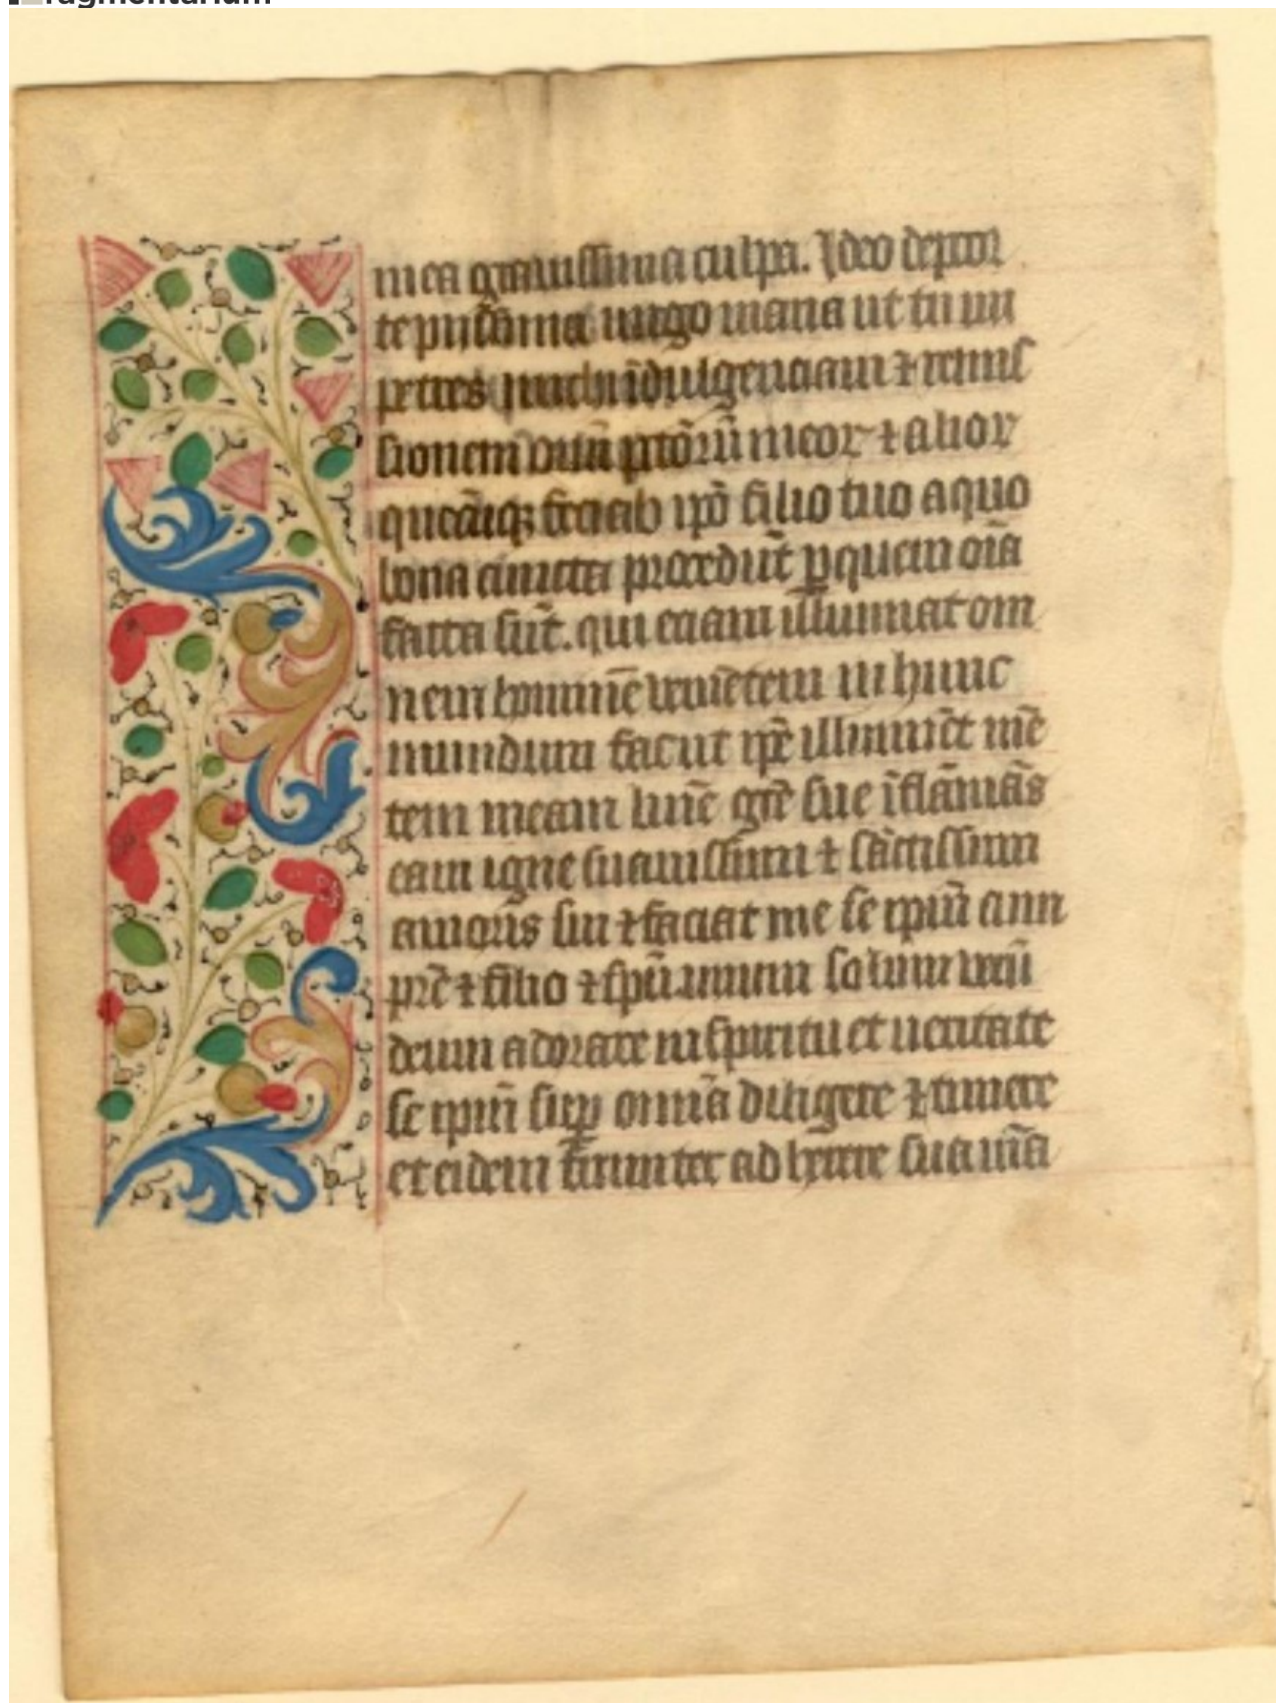 fragmentarium
mea grauissima culpa. Ideo deprecor
te piissima uirgo maria ut tu im
petres michi īdulgenciam ⁊ remis
sionem oīm pctōrū meoꝝ ⁊ alioꝝ
quecūqꝫ feci ab ip̄o filio tuo a quo
bona cuncta procedūt ꝑ quem oīa
facta sūt. qui eciam illuminat om
nem hominē uenīētem in hunc
mundum faciat ip̄e illuminet mē
tem meam lumīe gr̄e sue īflāmās
eam igne suauissimi ⁊ sāctissimi
amoris sui ⁊ faciat me se ip̄m cum
pr̄e ⁊ filio ⁊ sp̄u unum solum uerū
deum adorare in spiritu et ueritate
se ip̄m suꝑ omnia diligere ⁊ timere
et eidem firmiter adherere sua mīa